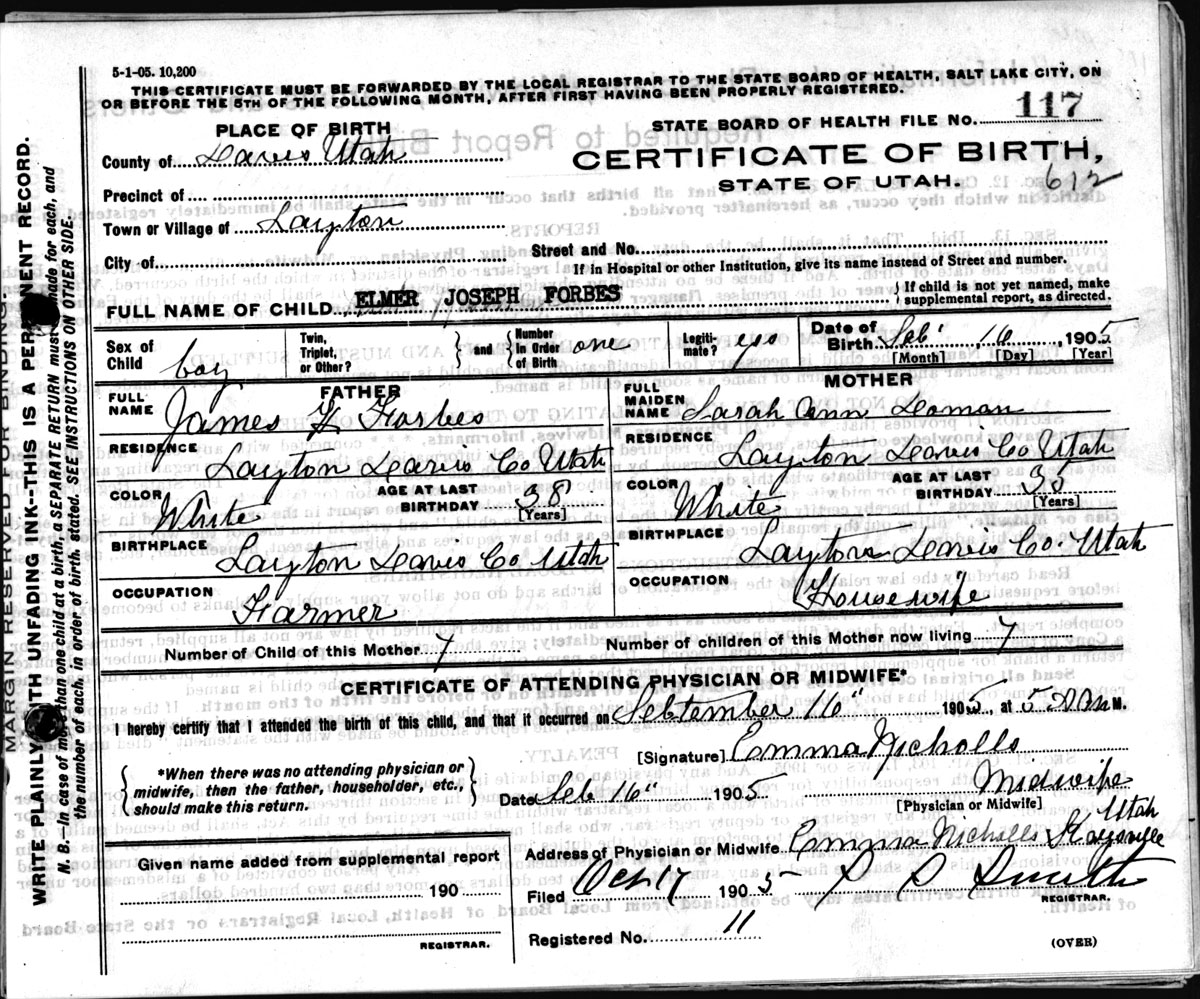 5-1-05. 10,200
THIS CERTIFICATE MUST BE FORWARDED BY THE LOCAL REGISTRAR TO THE STATE BOARD OF HEALTH, SALT LAKE CITY, ON
OR BEFORE THE 5TH OF THE FOLLOWING MONTH, AFTER FIRST HAVING BEEN PROPERLY REGISTERED.
PLACE OF BIRTH
STATE BOARD OF HEALTH FILE NO. 117
County of Davis Utah
CERTIFICATE OF BIRTH,
STATE OF UTAH. 612
Precinct of
Town or Village of Layton
Street and No.
City of
If in Hospital or other Institution, give its name instead of Street and number.
FULL NAME OF CHILD ELMER JOSEPH FORBES
{ If child is not yet named, make
supplemental report, as directed.
Sex of Child boy
Twin, Triplet, or Other?
and
Number in Order of Birth one
Legiti-mate? yes
Date of Birth Seb 16 1905
[Month] [Day] [Year]
FATHER
FULL NAME James Forbes
RESIDENCE Layton Davis Co Utah
COLOR White
AGE AT LAST BIRTHDAY 38 [Years]
BIRTHPLACE Layton Davis Co Utah
OCCUPATION Farmer
MOTHER
FULL MAIDEN NAME Sarah Ann Daman
RESIDENCE Layton Davis Co Utah
COLOR White
AGE AT LAST BIRTHDAY [Years]
BIRTHPLACE Layton Davis Co. Utah
OCCUPATION Housewife
Number of Child of this Mother 7
Number of children of this Mother now living 7
CERTIFICATE OF ATTENDING PHYSICIAN OR MIDWIFE*
I hereby certify that I attended the birth of this child, and that it occurred on September 16" 1905, at M.
[Signature] Emma Nicholls
{ *When there was no attending physician or
midwife, then the father, householder, etc.,
should make this return. }
Date Seb 16" 1905
Midwife
[Physician or Midwife]
Address of Physician or Midwife Emma Nicholls Kaysville Utah
Given name added from supplemental report
190
REGISTRAR.
Filed Oct 17 1905 Smith
REGISTRAR.
Registered No. 11
(OVER)
MARGIN RESERVED FOR BINDING.
WRITE PLAINLY WITH UNFADING INK--THIS IS A PERMANENT RECORD.
N. B.--In case of more than one child at a birth, a SEPARATE RETURN must be made for each, and
the number of each, in order of birth, stated. SEE INSTRUCTIONS ON OTHER SIDE.